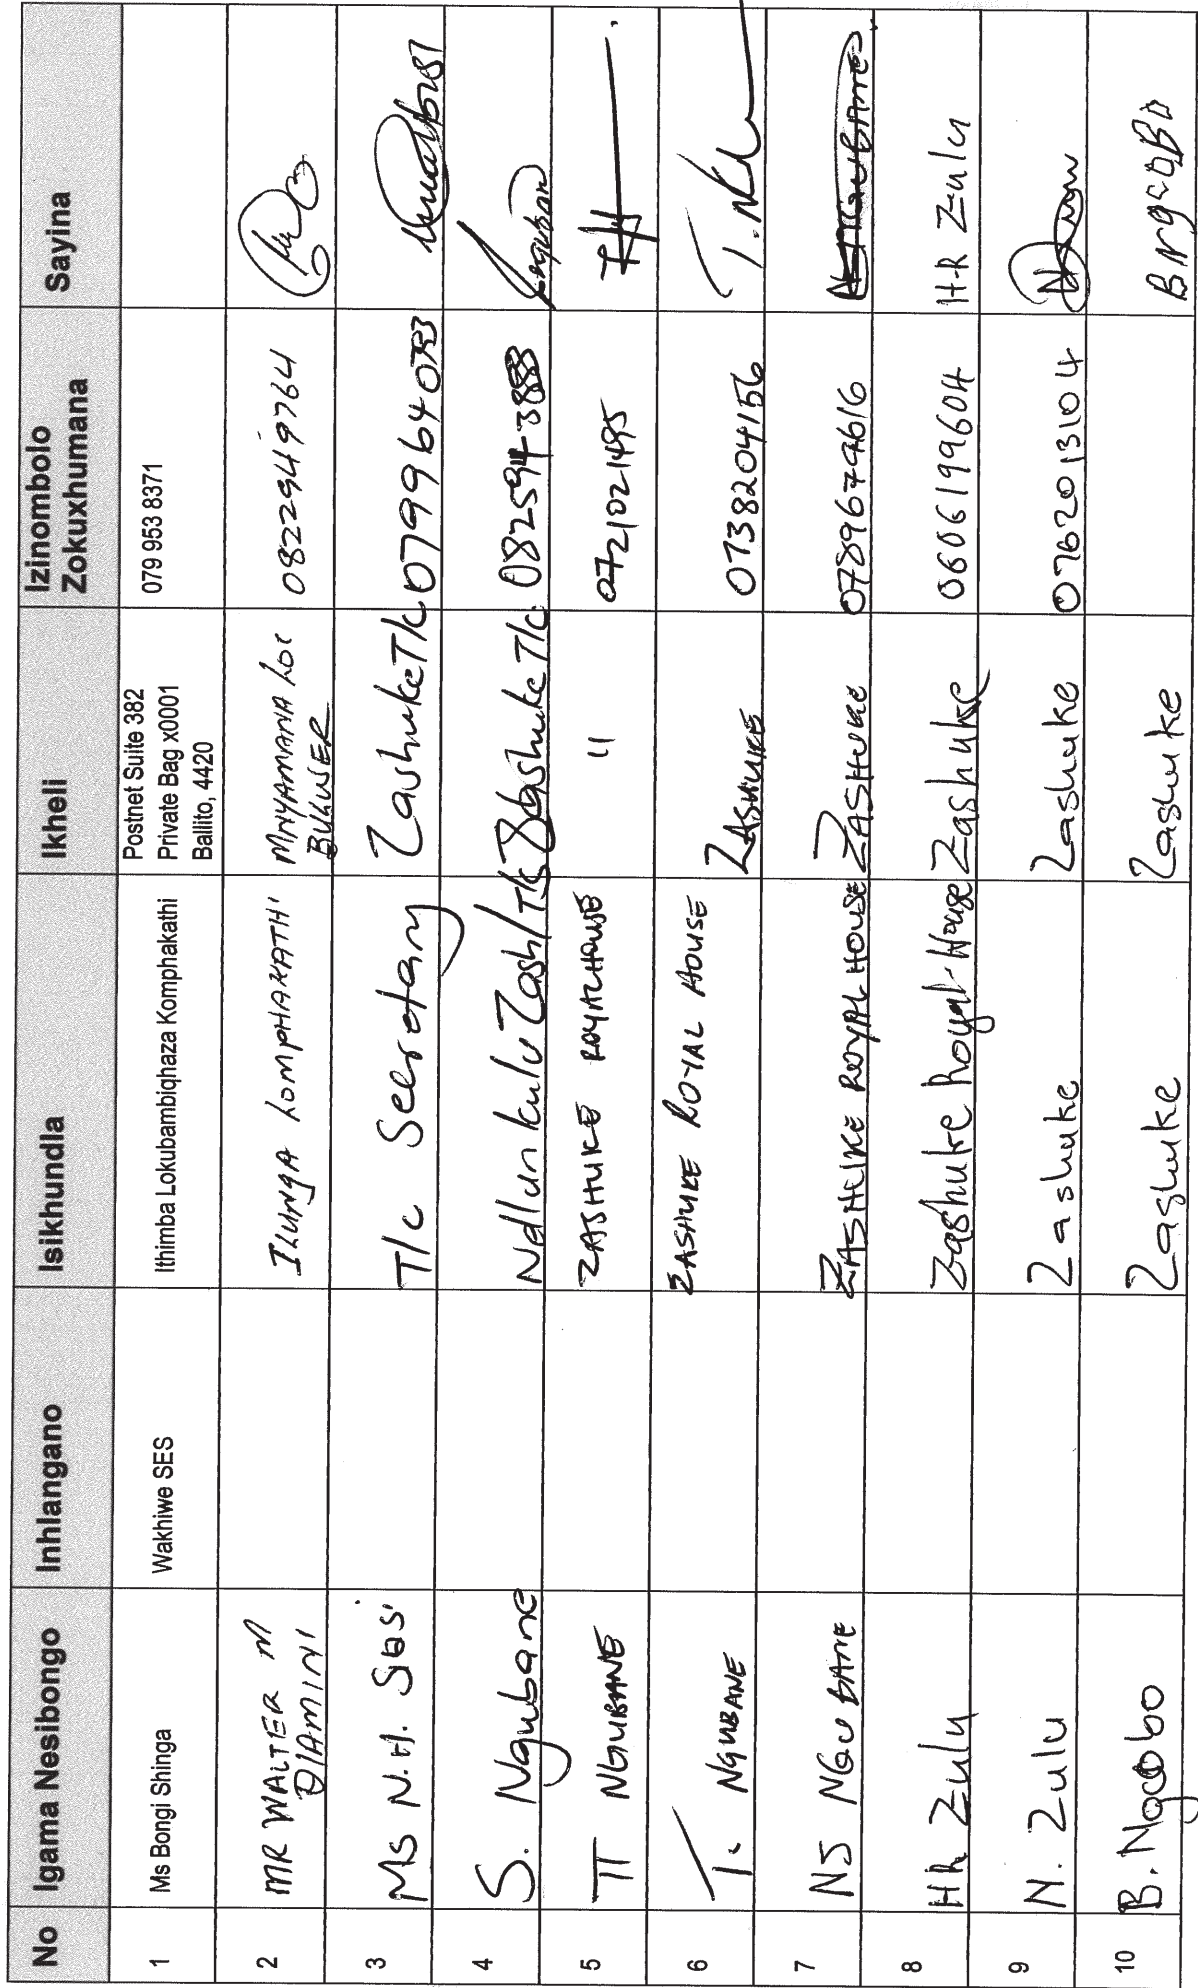 No Igama Nesibongo Inhlangano Isikhundla Ikheli Izinombolo Zokuxhumana Sayina
1 Ms Bongi Shinga Wakhiwe SES Ithimba Lokubambiqhaza Komphakathi Postnet Suite 382
Private Bag x0001
Ballito, 4420 079 953 8371
2 MR WALTER M
DLAMINI ILUNGA LOMPHAKATHI MNYAMANA LOC
BULWER 0822949764
3 Ms N.H. T/c Secretary Zashuke T/c 0799640793
4 S. Ngubane Ndlunkulu Zash/T/c Zashuke T/c
5 TT NGUBANE ZASHUKE ROYAL HOUSE " 0721021495
6 T. NGUBANE ZASHUKE ROYAL HOUSE ZASHUKE 0738204156
7 NS NGUBANE ZASHUKE ROYAL HOUSE ZASHUKE 0789674616 NGUBANE
8 HR Zulu Zashuke Royal House Zashuke 0606199604 H-R Zulu
9 N. Zulu Zashuke Zashuke 0762013104
10 B. Ngcobo Zashuke Zashuke B Ngcobo